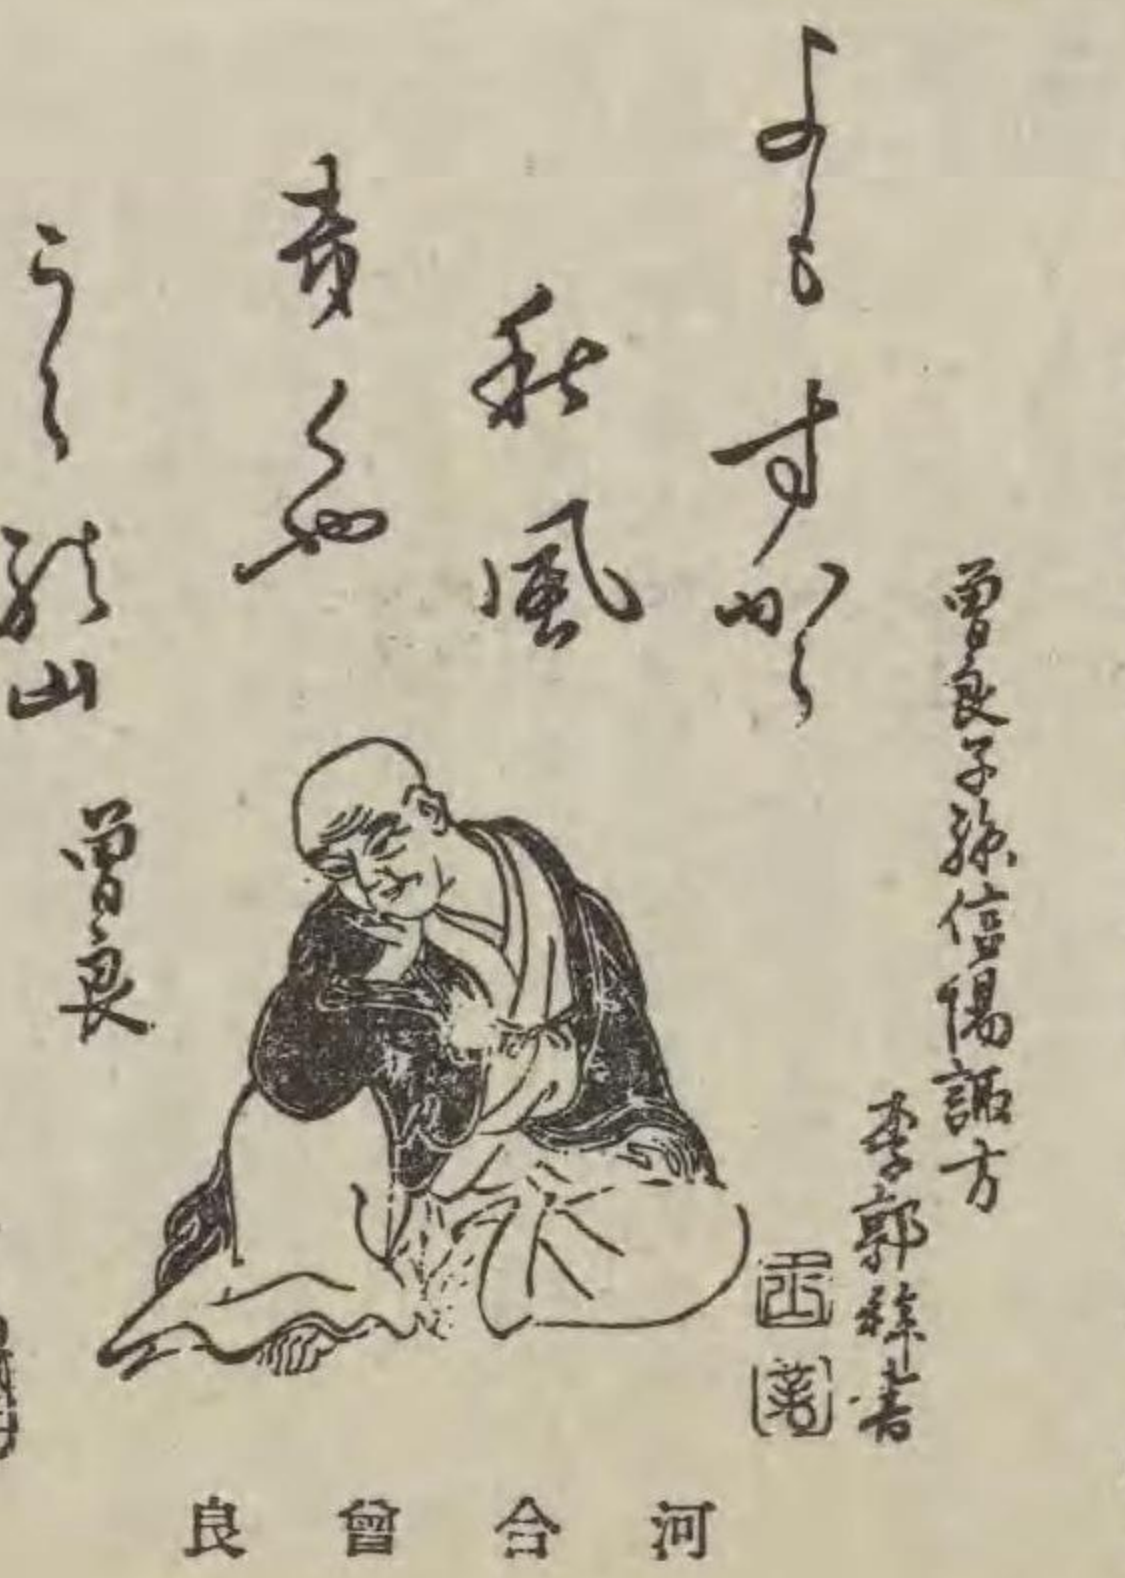 曽良子孫信陽諏方
李郭 書
よもすから
秋風
くや
うら能山
曽良
河合曾良